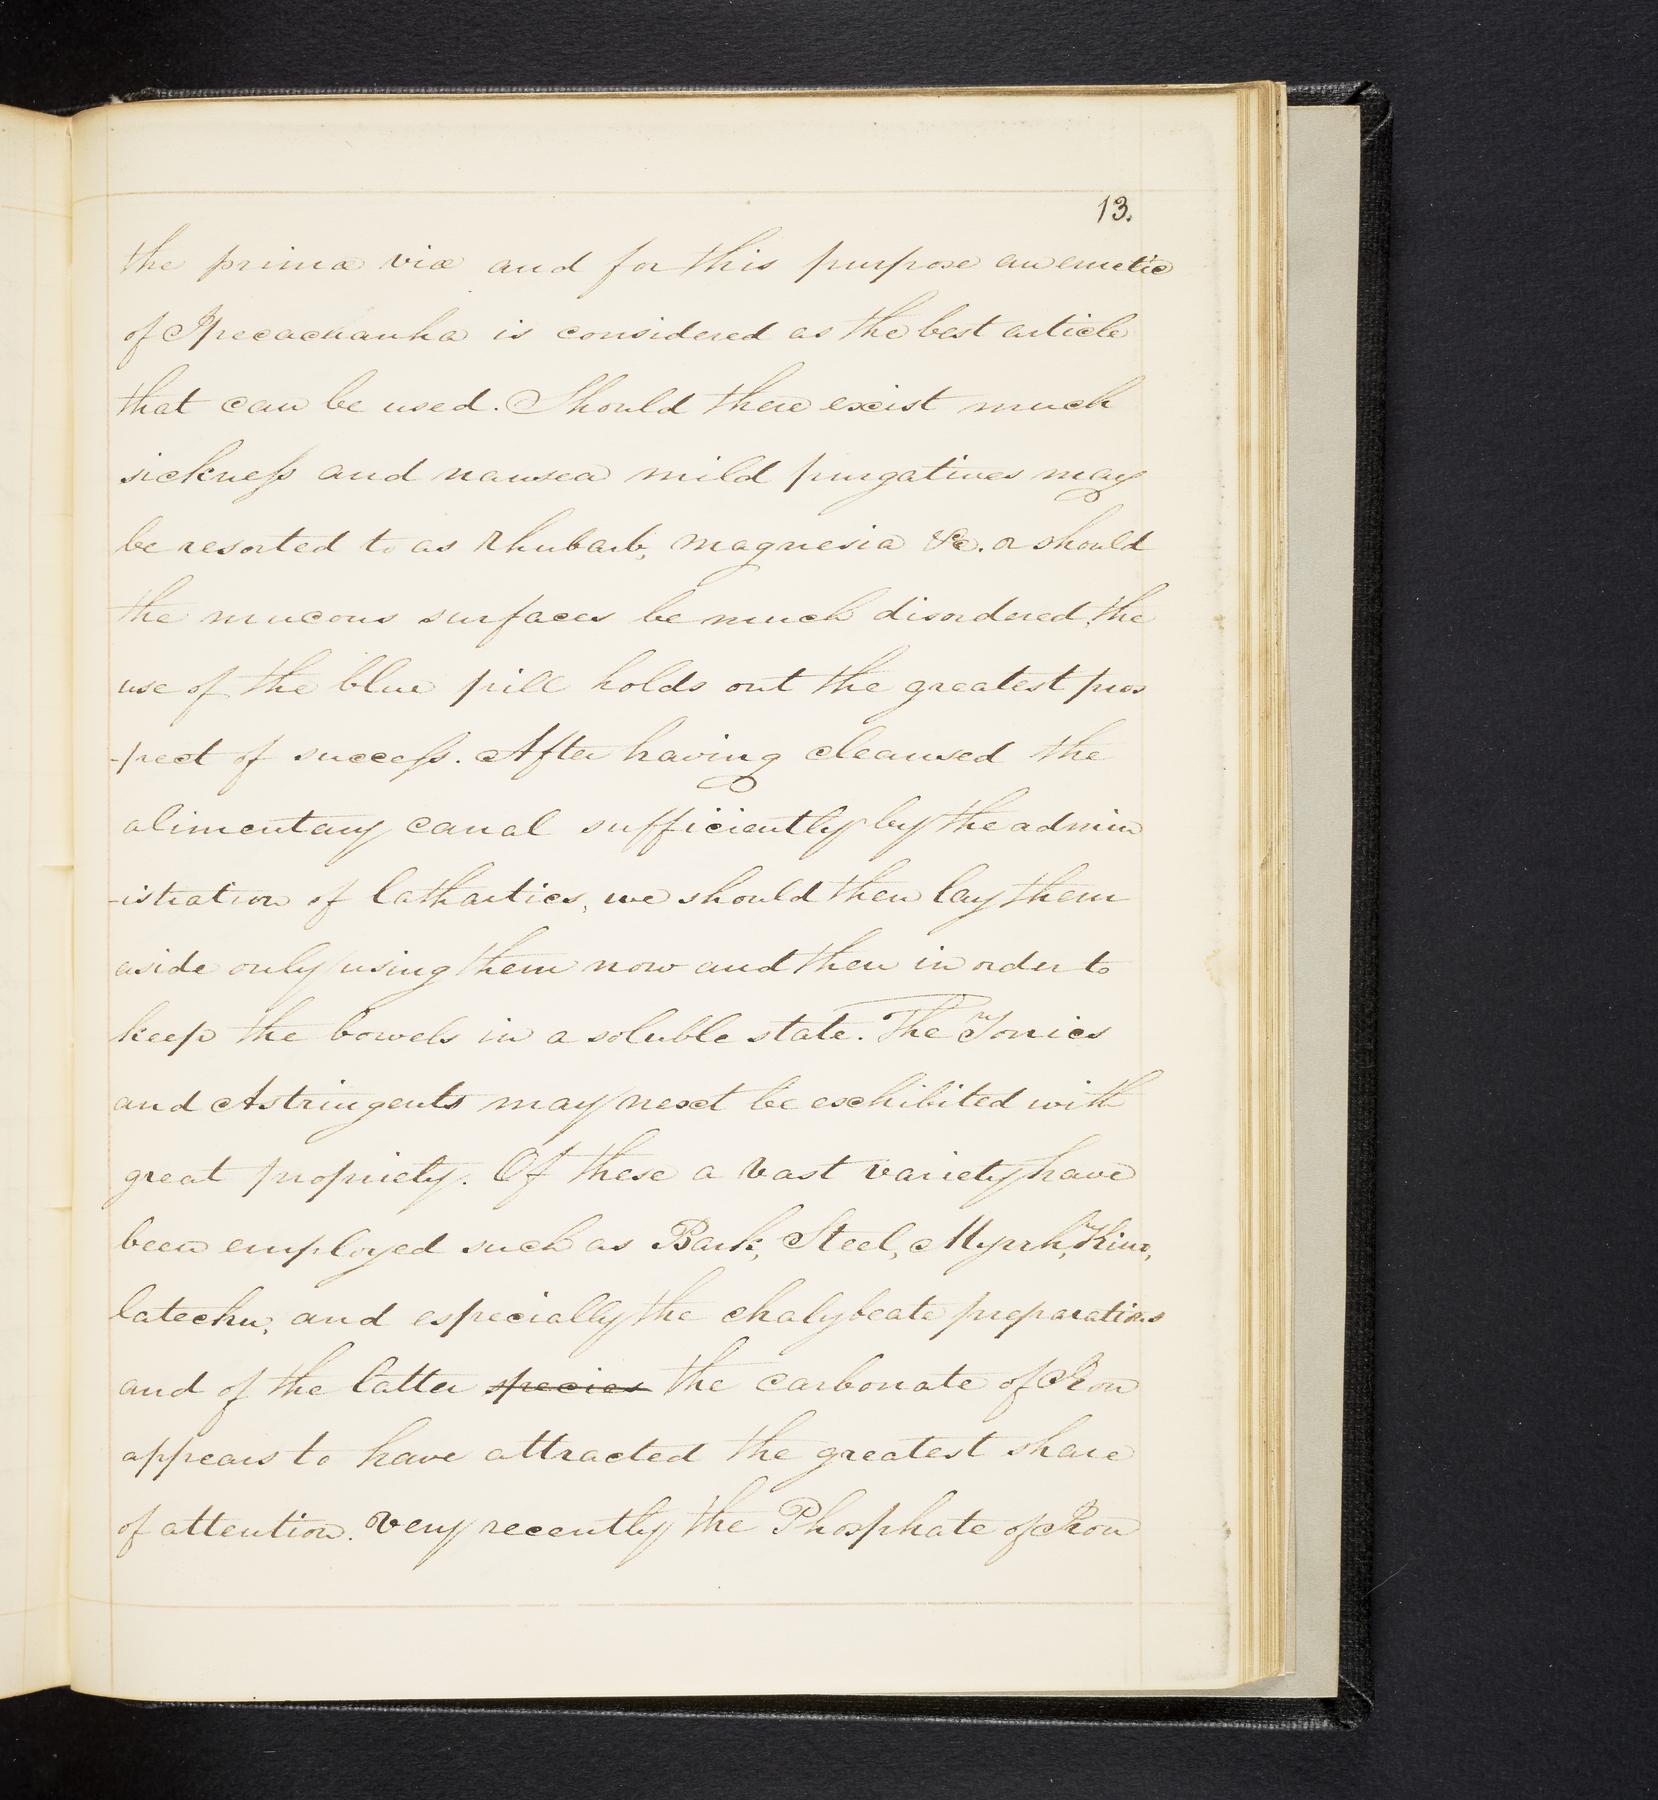 13.
the primæ viæ and for this purpose an emetic
of Ipecacuanha is considered as the best article
that can be used. Should there exist much
sickness and nausea mild purgatives may
be resorted to as rhubarb, magnesia &c. or should
the mucous surfaces be much disordered, the
use of the blue pill holds out the greatest pros
-pect of success. After having cleansed the
alimentary canal sufficiently by the admin
-istration of Cathartics, we should then lay them
aside only using them now and then in order to
keep the bowels in a soluble state. The Tonics
and Astringents may next be exhibited with
great propriety. Of these a vast variety have
been employed such as Bark, Steel, Myrrh, Kino,
Catechu, and especially the chalybeate preparations
and of the latter species the carbonate of Iron
appears to have attracted the greatest share
of attention. Very recently the Phosphate of Iron